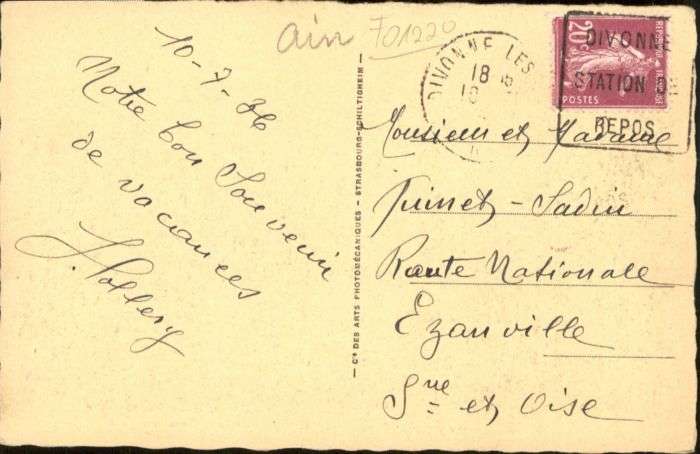 ain F01220
10-7-36
Notre bon Souvenir
de vacances
DIVONNE LES
18
20c
POSTES
DIVONNE
STATION
REPOS
Cie DES ARTS PHOTOMÉCANIQUES - STRASBOURG-SCHILTIGHEIM
Monsieur et Madame
Route Nationale
Ezanville
Sne et Oise